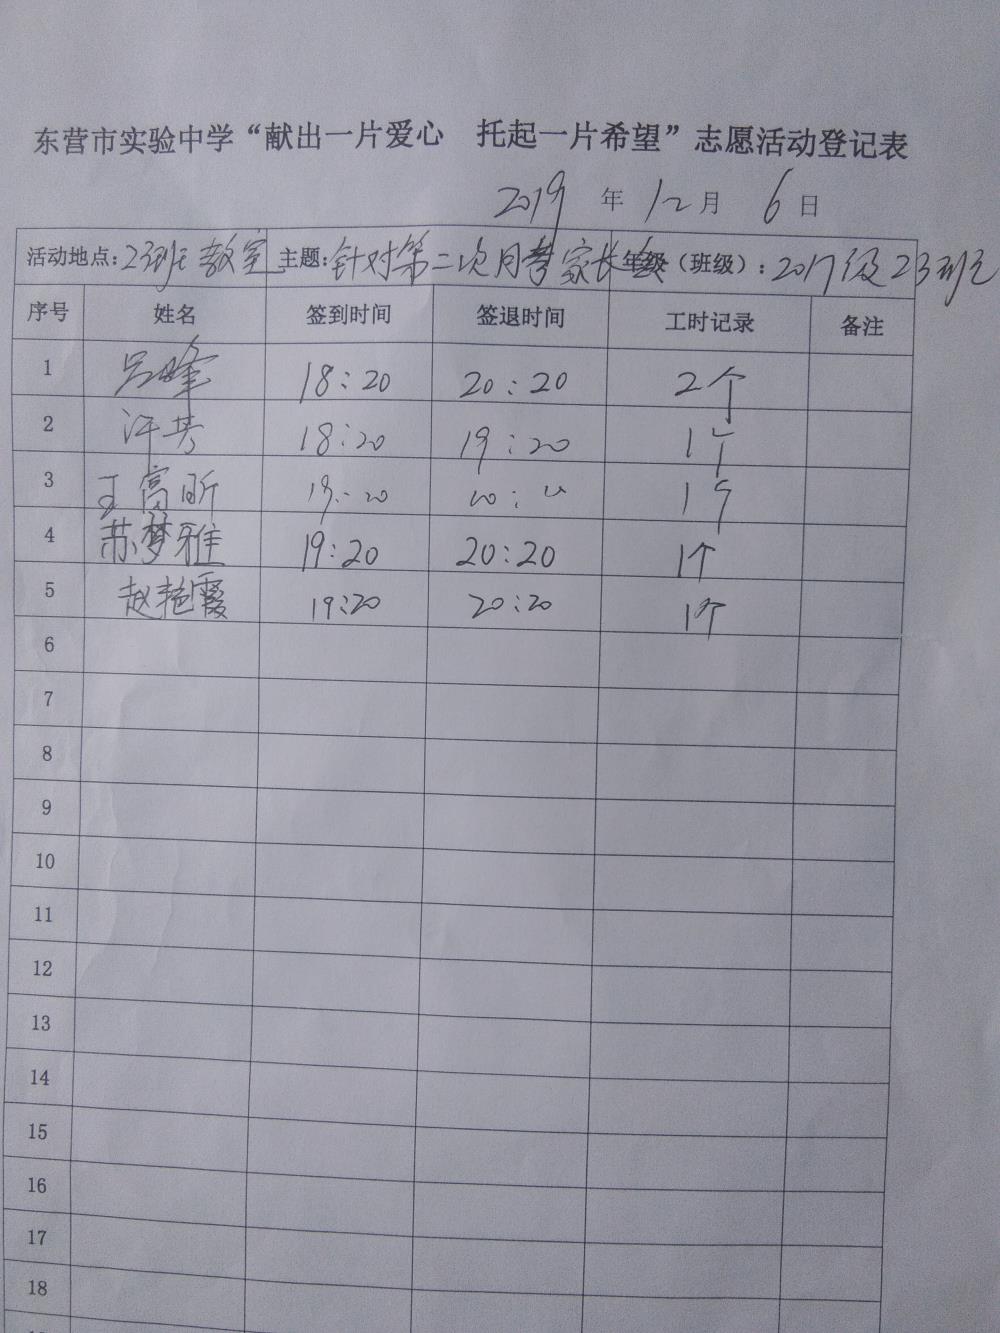 东营市实验中学“献出一片爱心 托起一片希望”志愿活动登记表
2019 年 12 月 6 日
活动地点：23班教室 主题：针对第二次月考家长会 年级（班级）：2017级23班
序号 姓名 签到时间 签退时间 工时记录 备注
1 吕峰 18:20 20:20 2个
2 许芳 18:20 19:20 1个
3 王富昕 19:20 20:20 1个
4 苏梦雅 19:20 20:20 1个
5 赵艳霞 19:20 20:20 1个
6
7
8
9
10
11
12
13
14
15
16
17
18